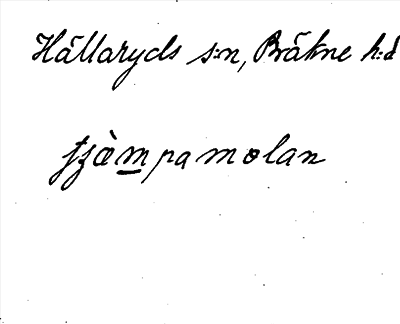 Hällaryds s:n, Bräkne h:d
fjæ̀m̲pamolan